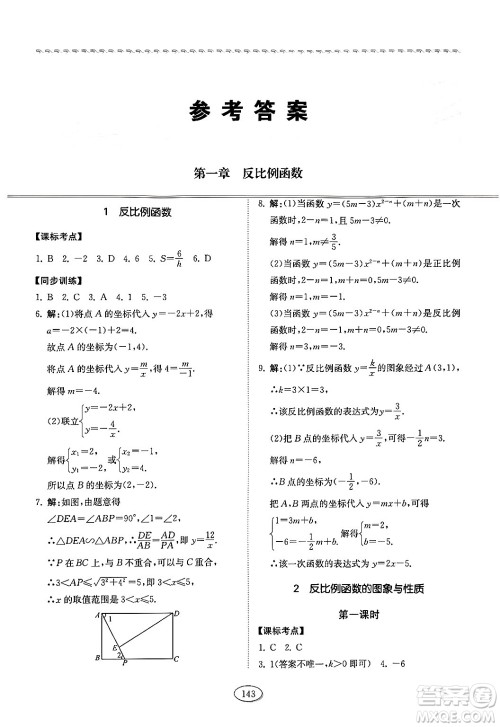 参考答案
第一章 反比例函数
1 反比例函数
【课标考点】
1. B 2. −2 3. D 4. D 5. S=6/h 6. D
【同步训练】
1. B 2. C 3. A 4. 5 5. −3
6. 解:(1)将点 A 的坐标代入 y=−x+2,得
a=−2×(−1)+2=4.
故点 A 的坐标为(−2,4).
将点 A 的坐标代入 y=m/x,得 m/−2=4.
解得 m=−4.
(2)联立{y=−x+2,
y=−4/x.
解得{x₁=2, {x₂=−2,
y₁=0, y₂=4.
7. 解:如图,由题意得
∠DEA=∠ABP=90°,∠1=∠2,
∴△DEA∽△ABP,∴DE/AB=AD/PA,即 y=12/x.
∵P 在 BC 上,与点 B,C 不重合,
∴3<AP≤√(3²+4²)=5.
∴x 的取值范围是 3<x≤5.
A D
1
E
2
B P C
8. 解:(1)当函数 y=(5m−3)x²⁻ⁿ+(m+n)是一次
函数时,2−n=1,5m−3≠0.
解得 n=1,m≠3/5.
(2)当函数 y=(5m−3)x²⁻ⁿ+(m+n)是正比例
函数时,2−n=1,m+n=0,5m−3≠0.
解得 n=1,m=−1.
(3)当函数 y=(5m−3)x²⁻ⁿ+(m+n)是反比例
函数时,2−n=−1,m+n=0,5m−3≠0.
解得 n=3,m=−3.
9. 解:(1)∵反比例函数 y=k/x的图象过 A(3,1),
∴k=3×1=3.
∴该反比例函数的表达式为 y=3/x.
(2)把 B 点的坐标代入 y=3/x,得 n=−1/2.
∴B 点的坐标为(−1/2,−6).
把 A,B 两点的坐标代入 y=mx+b,得
{1=3m+b,
−6=−1/2m+b.
解得{m=2,
b=−5.
∴该一次函数的表达式为 y=2x−5.
2 反比例函数的图象与性质
第一课时
【课标考点】
1. C 2. C
3. 1(答案不唯一,k>0 即可) 4. −6
143